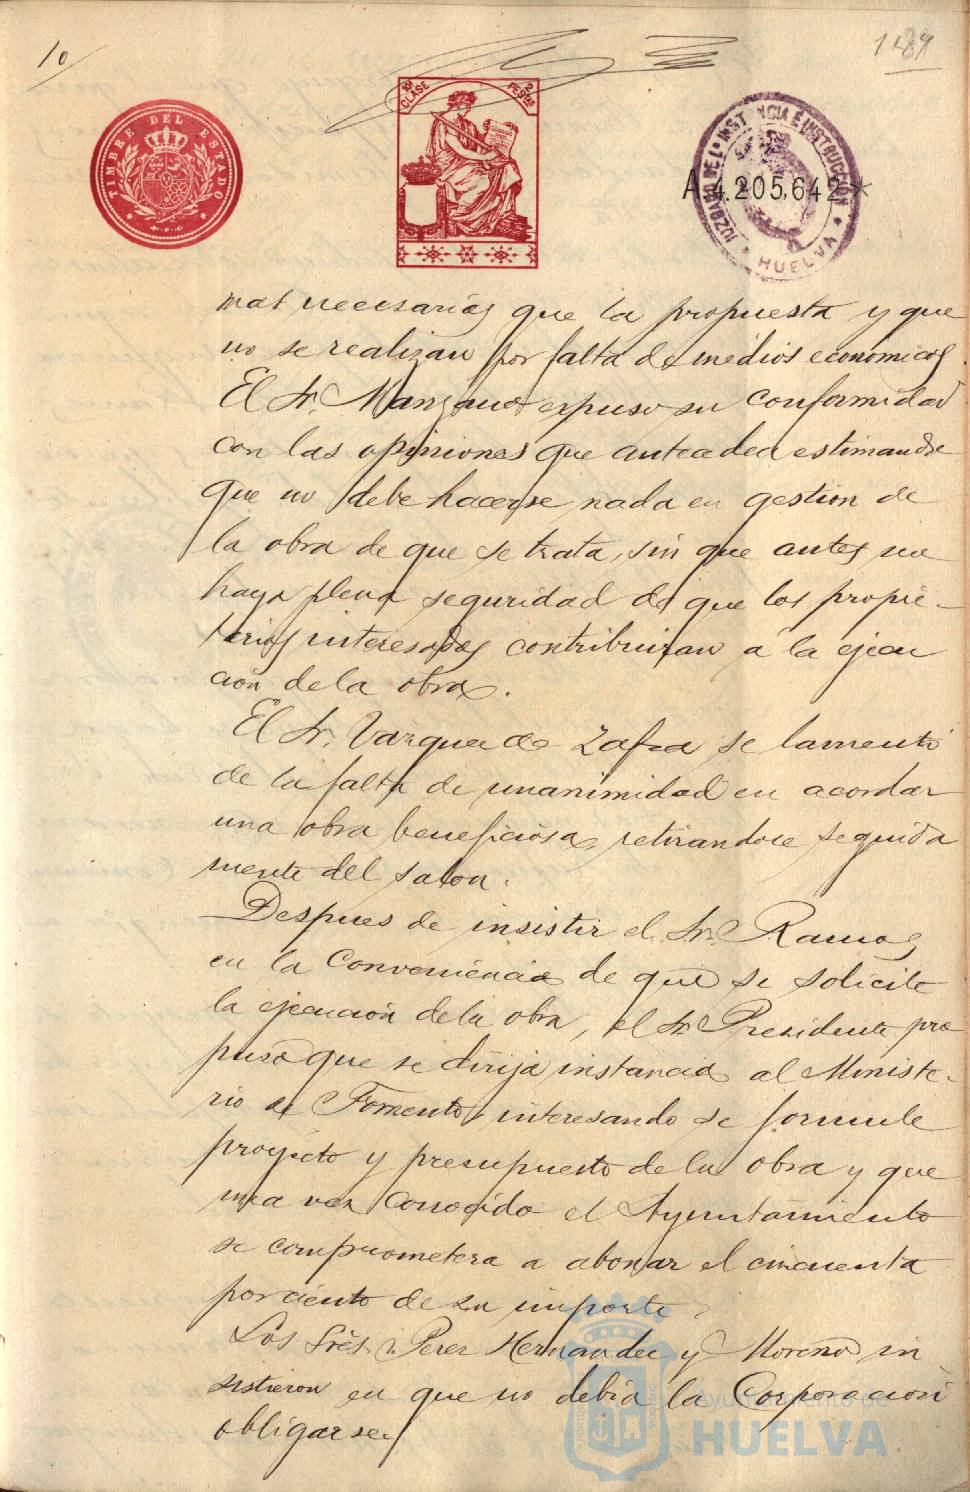 10
189
TIMBRE DEL ESTADO
10ª CLASE 2 PESETAS
JUZGADO DE 1ª INSTANCIA E INSTRUCCIÓN
HUELVA
A 4.205,642*
mas necesarias que la propuesta y que
no se realizan por falta de medios economicos
El Sr. Manzano expuso su conformidad
con las opiniones que anteceden estimando
que no debe hacerse nada en gestion de
la obra de que se trata, sin que antes no
haya plena seguridad de que los propie-
tarios interesados contribuiran a la ejecu
ción de la obra.
El Sr. Vazquez de Zafra se lamentó
de la falta de unanimidad en acordar
una obra beneficiosa, retirandose seguida
mente del salon.
Despues de insistir el Sr. Ramos
en la conveniencia de que se solicite
la ejecución de la obra, el Sr. Presidente pro
puso que se dirija instancia al Ministe-
rio de Fomento, interesando se formule
proyecto y presupuesto de la obra y que
una vez conocido el Ayuntamiento
se comprometera a abonar el cincuenta
por ciento de su importe.
Los Srés. Perez Hernandez y Moreno in
sistieron en que no debia la Corporacion
obligarse
Ayuntamiento de
HUELVA